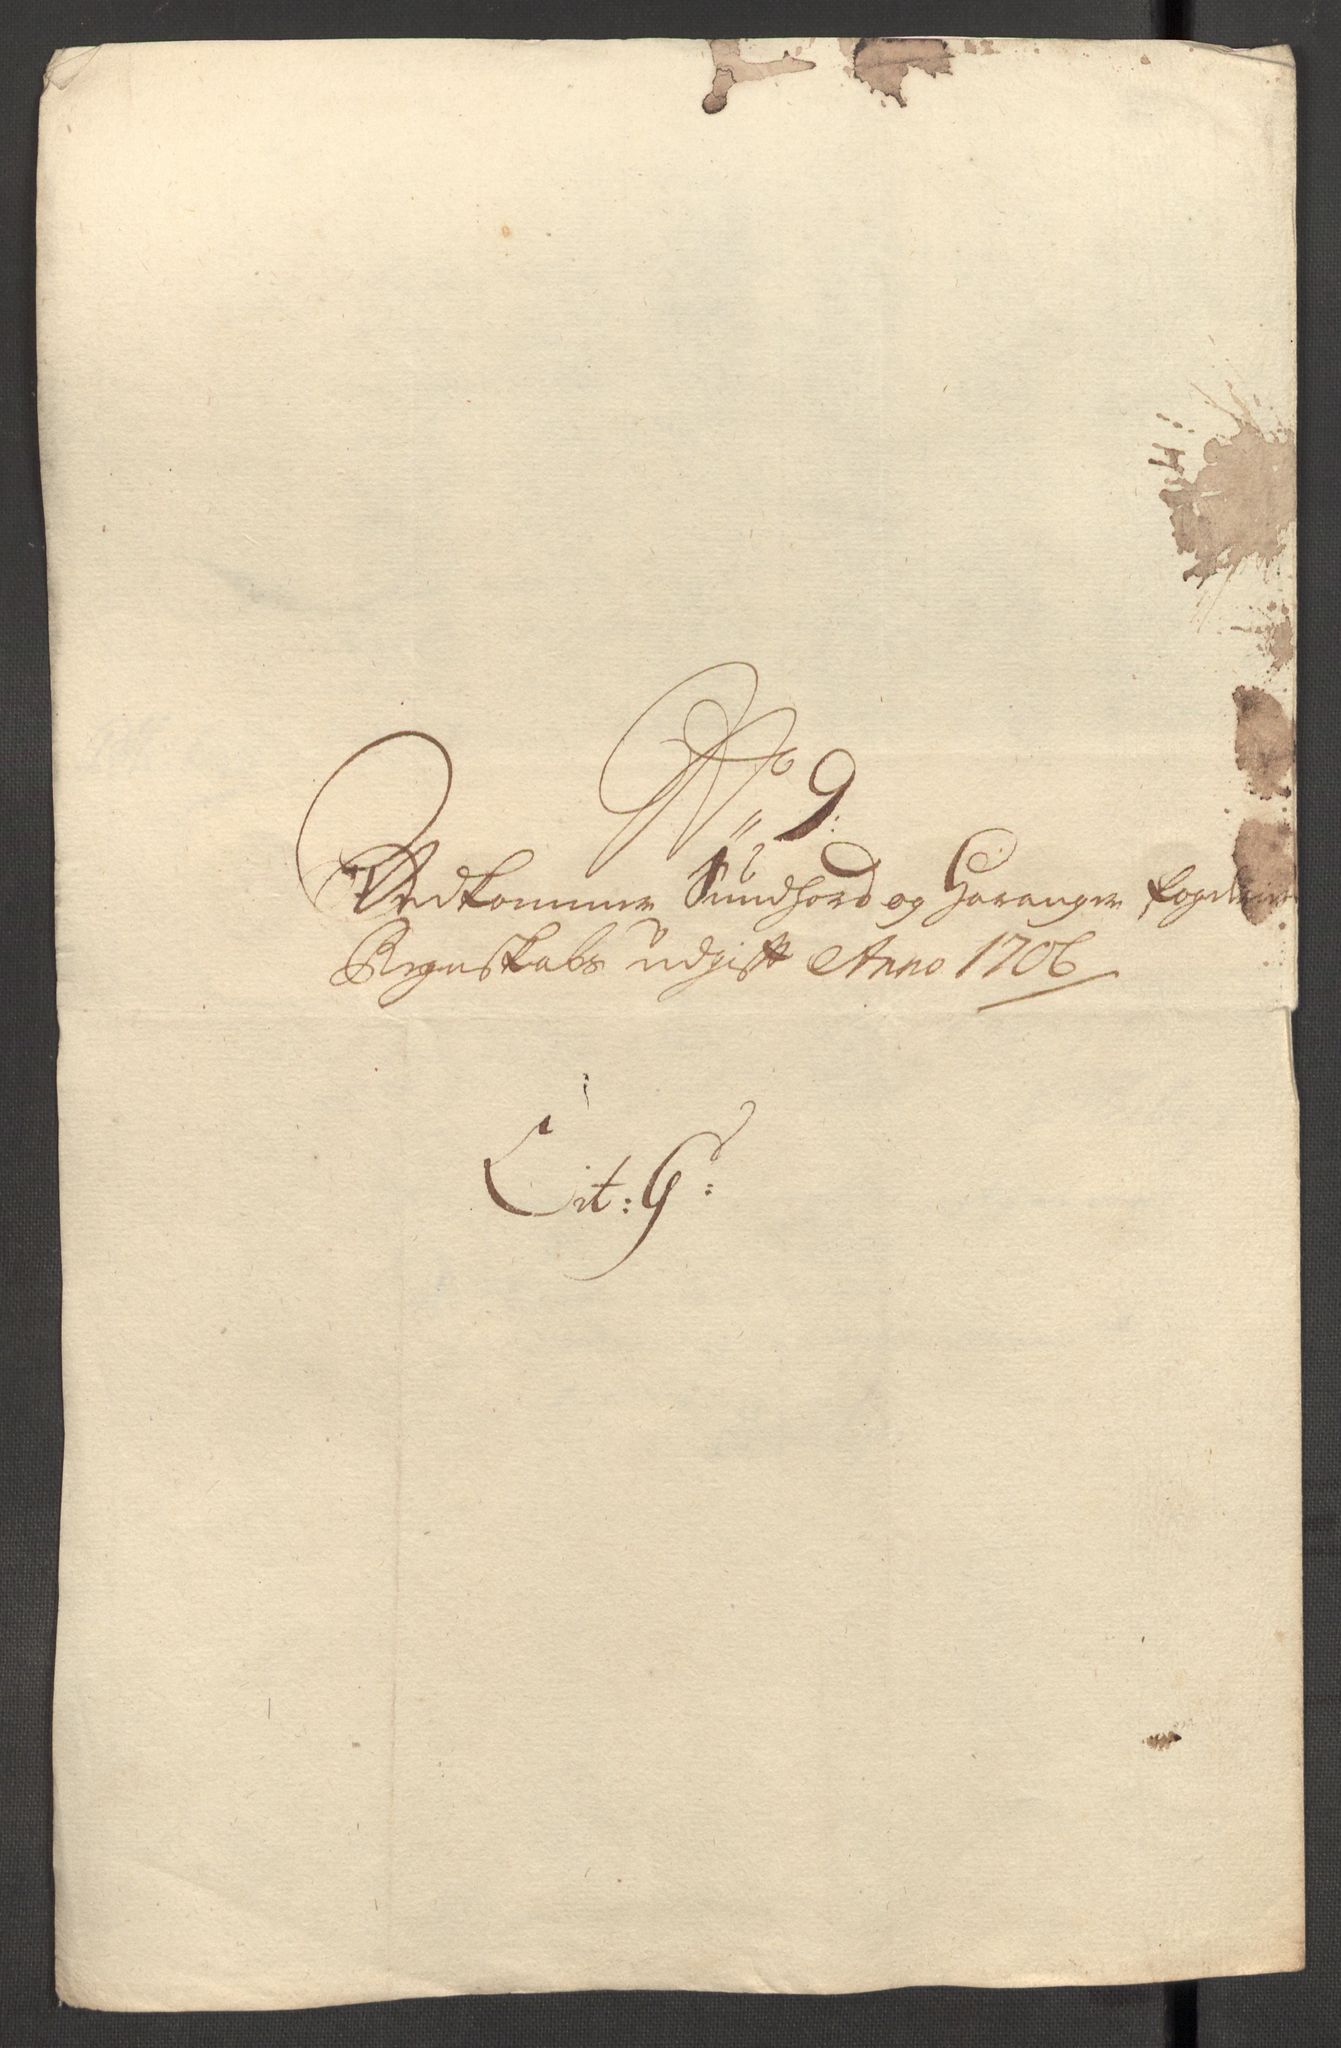 No 9:
Vedkommer Sundfiord og Haranger fogderie
Regnskabs udgift Anno 1706
Lit: G: